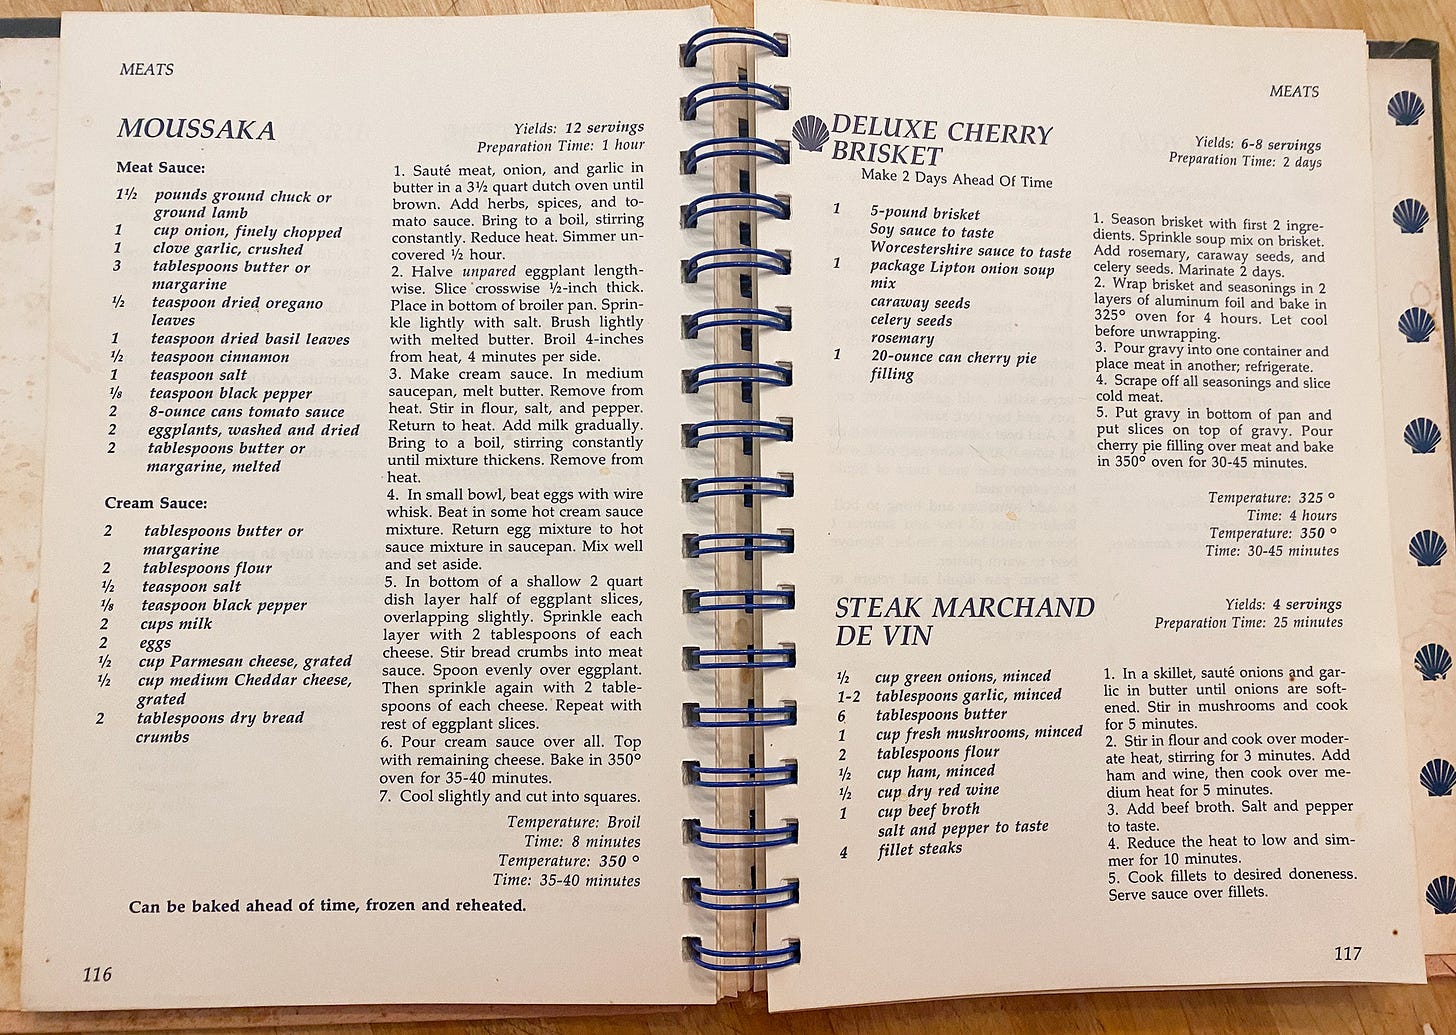 MEATS
MOUSSAKA
Yields: 12 servings
Preparation Time: 1 hour
Meat Sauce:
1½ pounds ground chuck or
ground lamb
1 cup onion, finely chopped
1 clove garlic, crushed
3 tablespoons butter or
margarine
½ teaspoon dried oregano
leaves
1 teaspoon dried basil leaves
½ teaspoon cinnamon
1 teaspoon salt
⅛ teaspoon black pepper
2 8-ounce cans tomato sauce
2 eggplants, washed and dried
2 tablespoons butter or
margarine, melted
Cream Sauce:
2 tablespoons butter or
margarine
2 tablespoons flour
½ teaspoon salt
⅛ teaspoon black pepper
2 cups milk
2 eggs
½ cup Parmesan cheese, grated
½ cup medium Cheddar cheese,
grated
2 tablespoons dry bread
crumbs
1. Sauté meat, onion, and garlic in
butter in a 3½ quart dutch oven until
brown. Add herbs, spices, and to-
mato sauce. Bring to a boil, stirring
constantly. Reduce heat. Simmer un-
covered ½ hour.
2. Halve unpared eggplant length-
wise. Slice crosswise ½-inch thick.
Place in bottom of broiler pan. Sprin-
kle lightly with salt. Brush lightly
with melted butter. Broil 4-inches
from heat, 4 minutes per side.
3. Make cream sauce. In medium
saucepan, melt butter. Remove from
heat. Stir in flour, salt, and pepper.
Return to heat. Add milk gradually.
Bring to a boil, stirring constantly
until mixture thickens. Remove from
heat.
4. In small bowl, beat eggs with wire
whisk. Beat in some hot cream sauce
mixture. Return egg mixture to hot
sauce mixture in saucepan. Mix well
and set aside.
5. In bottom of a shallow 2 quart
dish layer half of eggplant slices,
overlapping slightly. Sprinkle each
layer with 2 tablespoons of each
cheese. Stir bread crumbs into meat
sauce. Spoon evenly over eggplant.
Then sprinkle again with 2 table-
spoons of each cheese. Repeat with
rest of eggplant slices.
6. Pour cream sauce over all. Top
with remaining cheese. Bake in 350°
oven for 35-40 minutes.
7. Cool slightly and cut into squares.
Temperature: Broil
Time: 8 minutes
Temperature: 350 °
Time: 35-40 minutes
Can be baked ahead of time, frozen and reheated.
116
MEATS
DELUXE CHERRY
BRISKET
Make 2 Days Ahead Of Time
Yields: 6-8 servings
Preparation Time: 2 days
1 5-pound brisket
Soy sauce to taste
Worcestershire sauce to taste
1 package Lipton onion soup
mix
caraway seeds
celery seeds
rosemary
1 20-ounce can cherry pie
filling
1. Season brisket with first 2 ingre-
dients. Sprinkle soup mix on brisket.
Add rosemary, caraway seeds, and
celery seeds. Marinate 2 days.
2. Wrap brisket and seasonings in 2
layers of aluminum foil and bake in
325° oven for 4 hours. Let cool
before unwrapping.
3. Pour gravy into one container and
place meat in another; refrigerate.
4. Scrape off all seasonings and slice
cold meat.
5. Put gravy in bottom of pan and
put slices on top of gravy. Pour
cherry pie filling over meat and bake
in 350° oven for 30-45 minutes.
Temperature: 325 °
Time: 4 hours
Temperature: 350 °
Time: 30-45 minutes
STEAK MARCHAND
DE VIN
Yields: 4 servings
Preparation Time: 25 minutes
½ cup green onions, minced
1-2 tablespoons garlic, minced
6 tablespoons butter
1 cup fresh mushrooms, minced
2 tablespoons flour
½ cup ham, minced
½ cup dry red wine
1 cup beef broth
salt and pepper to taste
4 fillet steaks
1. In a skillet, sauté onions and gar-
lic in butter until onions are soft-
ened. Stir in mushrooms and cook
for 5 minutes.
2. Stir in flour and cook over moder-
ate heat, stirring for 3 minutes. Add
ham and wine, then cook over me-
dium heat for 5 minutes.
3. Add beef broth. Salt and pepper
to taste.
4. Reduce the heat to low and sim-
mer for 10 minutes.
5. Cook fillets to desired doneness.
Serve sauce over fillets.
117